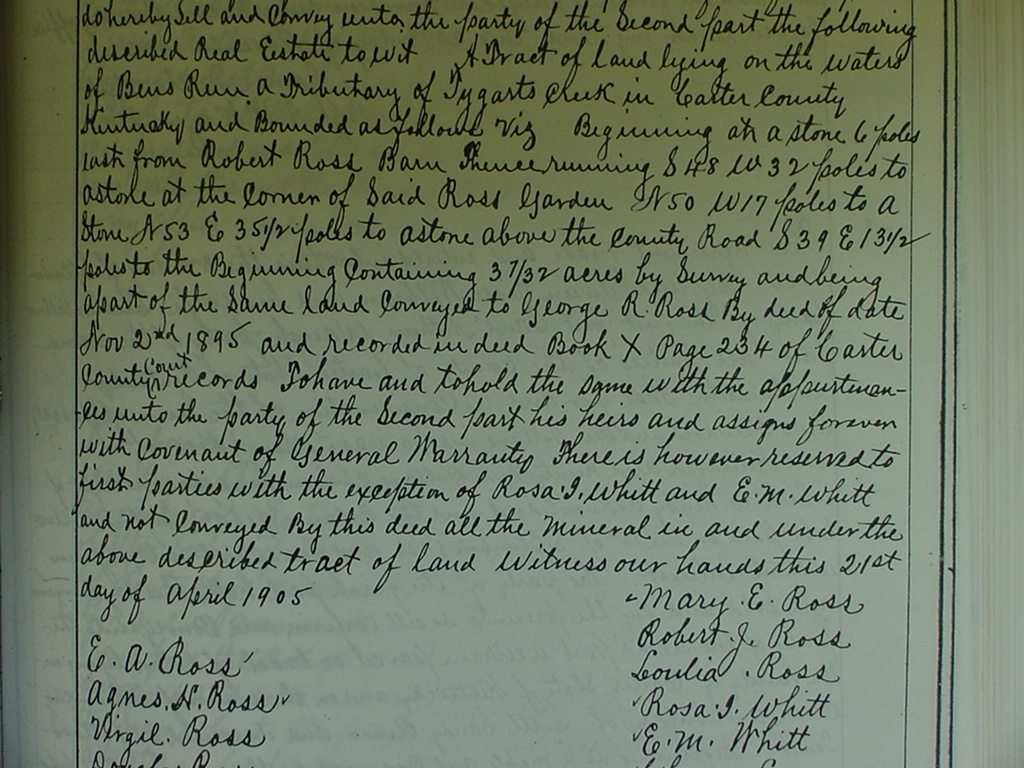 do hereby Sell and Convey unto the party of the Second part the following
described Real Eestate to wit A Tract of land lying on the waters
of Bens Run a Tributary of Tygarts Creek in Carter County
Kentucky and Bounded as follows Viz Beginning at a stone 6 poles
east from Robert Ross Barn Thence running S 48 W 32 poles to
a stone at the Corner of Said Ross Garden N 50 W 17 poles to a
Stone N 53 E 35 1/2 poles to a stone above the County Road S 39 E 13 1/2
poles to the Beginning Containing 3 7/32 acres by Survey and being
a part of the Same land Conveyed to George R. Ross By deed of date
Nov 2nd 1895 and recorded in deed Book X Page 234 of Carter
County Court records To have and to hold the same with the appurtenan-
ces unto the party of the Second part his heirs and assigns forever
with Covenant of General Warranty There is however reserved to
first parties with the exception of Rosa I. Whitt and E. M. Whitt
and not Conveyed By this deed all the mineral in and under the
above described tract of land Witness our hands this 21st
day of April 1905
Mary E. Ross
Robert J. Ross
E. A. Ross
Loulia Ross
Agnes. H. Ross
Rosa I. Whitt
Virgil. Ross
E. M. Whitt